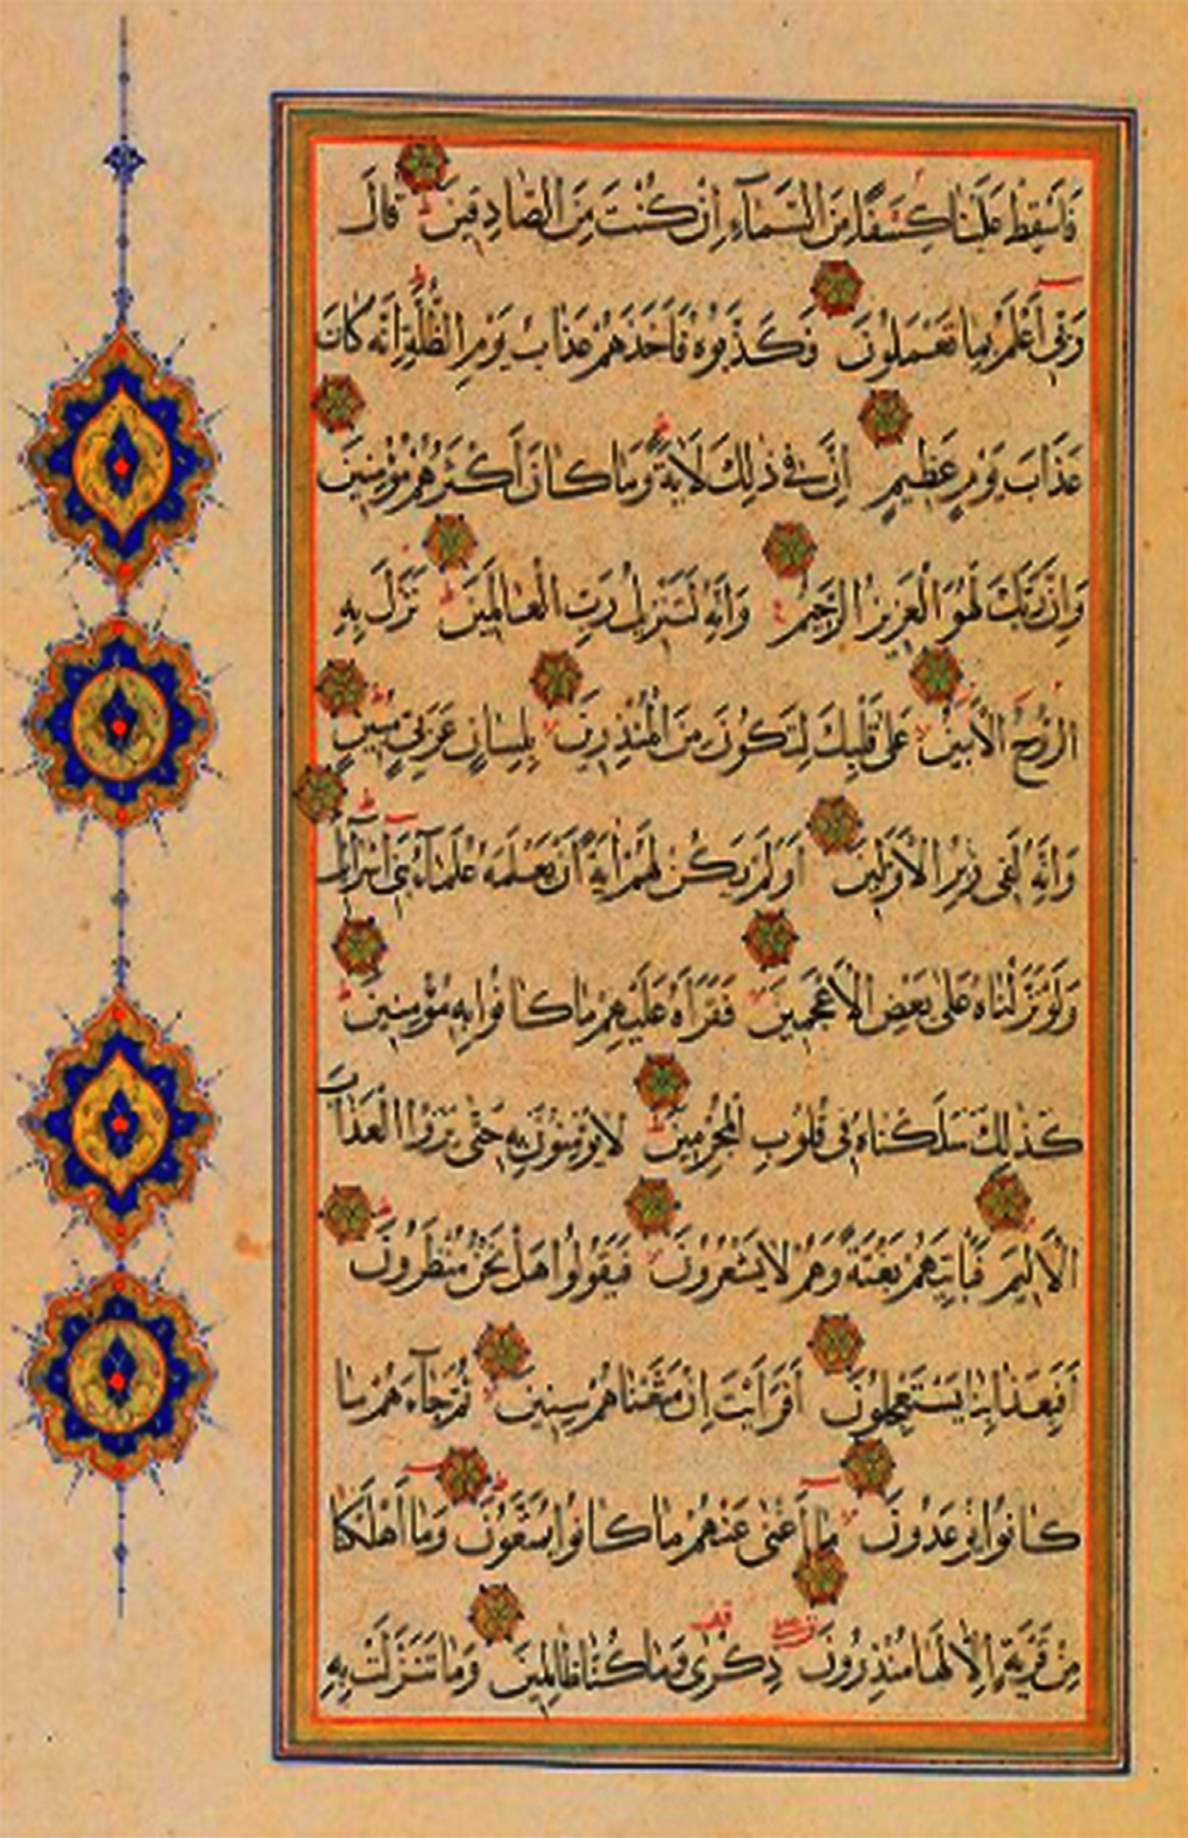 فَاَسْقِطْ عَلَيْنَا كِسَفًا مِنَ السَّمَآءِ اِنْ كُنْتَ مِنَ الصَّادِقِينَ قَالَ
رَبِّي اَعْلَمُ بِمَا تَعْمَلُونَ فَكَذَّبُوهُ فَاَخَذَهُمْ عَذَابُ يَوْمِ الظُّلَّةِ اِنَّهُ كَانَ
عَذَابَ يَوْمٍ عَظِيمٍ اِنَّ فِي ذٰلِكَ لَاٰيَةً وَمَا كَانَ اَكْثَرُهُمْ مُؤْمِنِينَ
وَاِنَّ رَبَّكَ لَهُوَ الْعَزِيزُ الرَّحِيمُ وَاِنَّهُ لَتَنْزِيلُ رَبِّ الْعَالَمِينَ نَزَلَ بِهِ
الرُّوحُ الْاَمِينُ عَلٰى قَلْبِكَ لِتَكُونَ مِنَ الْمُنْذِرِينَ بِلِسَانٍ عَرَبِيٍّ مُبِينٍ
وَاِنَّهُ لَفِي زُبُرِ الْاَوَّلِينَ اَوَلَمْ يَكُنْ لَهُمْ اٰيَةً اَنْ يَعْلَمَهُ عُلَمَآءُ بَنِي اِسْرَآئِلَ
وَلَوْ نَزَّلْنَاهُ عَلٰى بَعْضِ الْاَعْجَمِينَ فَقَرَاَهُ عَلَيْهِمْ مَا كَانُوا بِهِ مُؤْمِنِينَ
كَذٰلِكَ سَلَكْنَاهُ فِي قُلُوبِ الْمُجْرِمِينَ لَا يُؤْمِنُونَ بِهِ حَتّٰى يَرَوُا الْعَذَابَ
الْاَلِيمَ فَيَاْتِيَهُمْ بَغْتَةً وَهُمْ لَا يَشْعُرُونَ فَيَقُولُوا هَلْ نَحْنُ مُنْظَرُونَ
اَفَبِعَذَابِنَا يَسْتَعْجِلُونَ اَفَرَاَيْتَ اِنْ مَتَّعْنَاهُمْ سِنِينَ ثُمَّ جَآءَهُمْ مَا
كَانُوا يُوعَدُونَ مَا اَغْنٰى عَنْهُمْ مَا كَانُوا يُمَتَّعُونَ وَمَا اَهْلَكْنَا
مِنْ قَرْيَةٍ اِلَّا لَهَا مُنْذِرُونَ ذِكْرٰى وَمَا كُنَّا ظَالِمِينَ وَمَا تَنَزَّلَتْ بِهِ